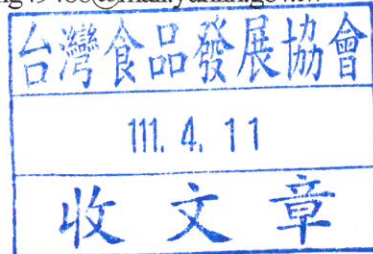 台灣食品發展協會
111. 4. 11
收文章